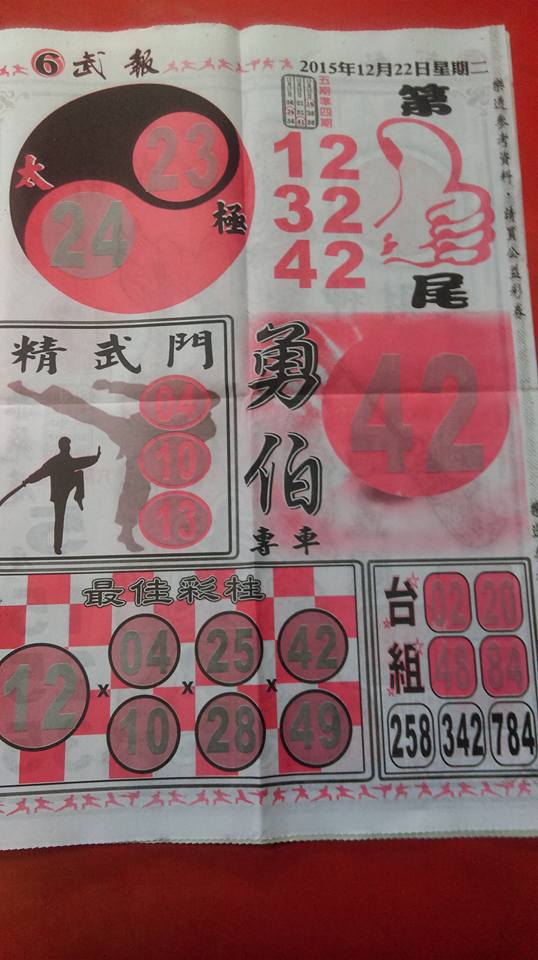 6 武報
2015年12月22日星期二
樂透參考資料·請買公益彩券
五期準四期
第
尾
12
32
42
太
極
23
24
精武門
04
10
13
勇伯
專車
42
最佳彩柱
12 x 04 10 x 25 28 x 42 49
台組
02 20
48 84
258 342 784